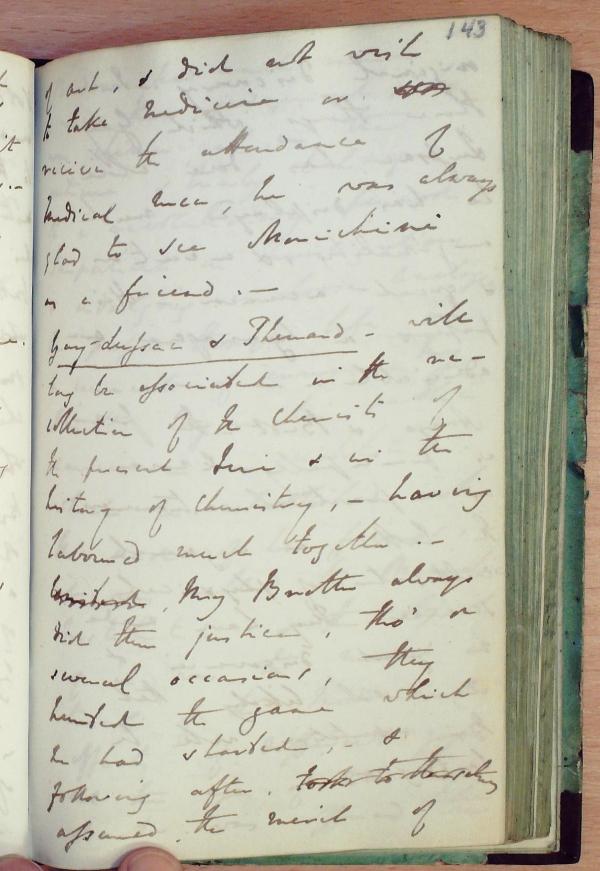 143
of art, & did not wish
to take medicine or
receive the attendance of
medical men, he was always
glad to see Morichini
as a friend. —
Gay-Lussac & Thenard – will
long be associated in the re-
collection of the Chemists of
the present time & in the
history of Chemistry, – having
laboured much together. –
My Brother always
did them justice, tho' on
several occasions, they
hunted the game which
he had started, – &
following after, took to themselves
assumed the merit of